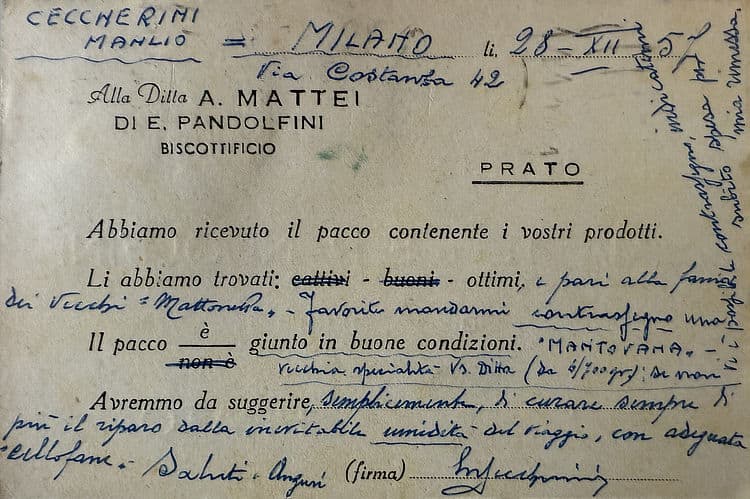 CECCHERINI
MANLIO = MILANO li, 28-XII 57
Via Costanza 42
Alla Ditta A. MATTEI
DI E. PANDOLFINI
BISCOTTIFICIO
PRATO
Abbiamo ricevuto il pacco contenente i vostri prodotti.
Li abbiamo trovati: cattivi - buoni - ottimi, e pari alla fama
dei vecchi "Mattonella" - Favorite mandarmi contrassegno una
Il pacco è giunto in buone condizioni. "MANTOVANA" -
non è
vecchia specialità Vs. Ditta (da 6/700 gr) se non
Avremmo da suggerire, semplicemente, di curare sempre di
più il riparo dalla inevitabile umidità del viaggio, con adeguata
cellofane. - Saluti - Auguri (firma)
vi è possibile contrassegno, indicatemi
subito spesa per
mia rimessa.